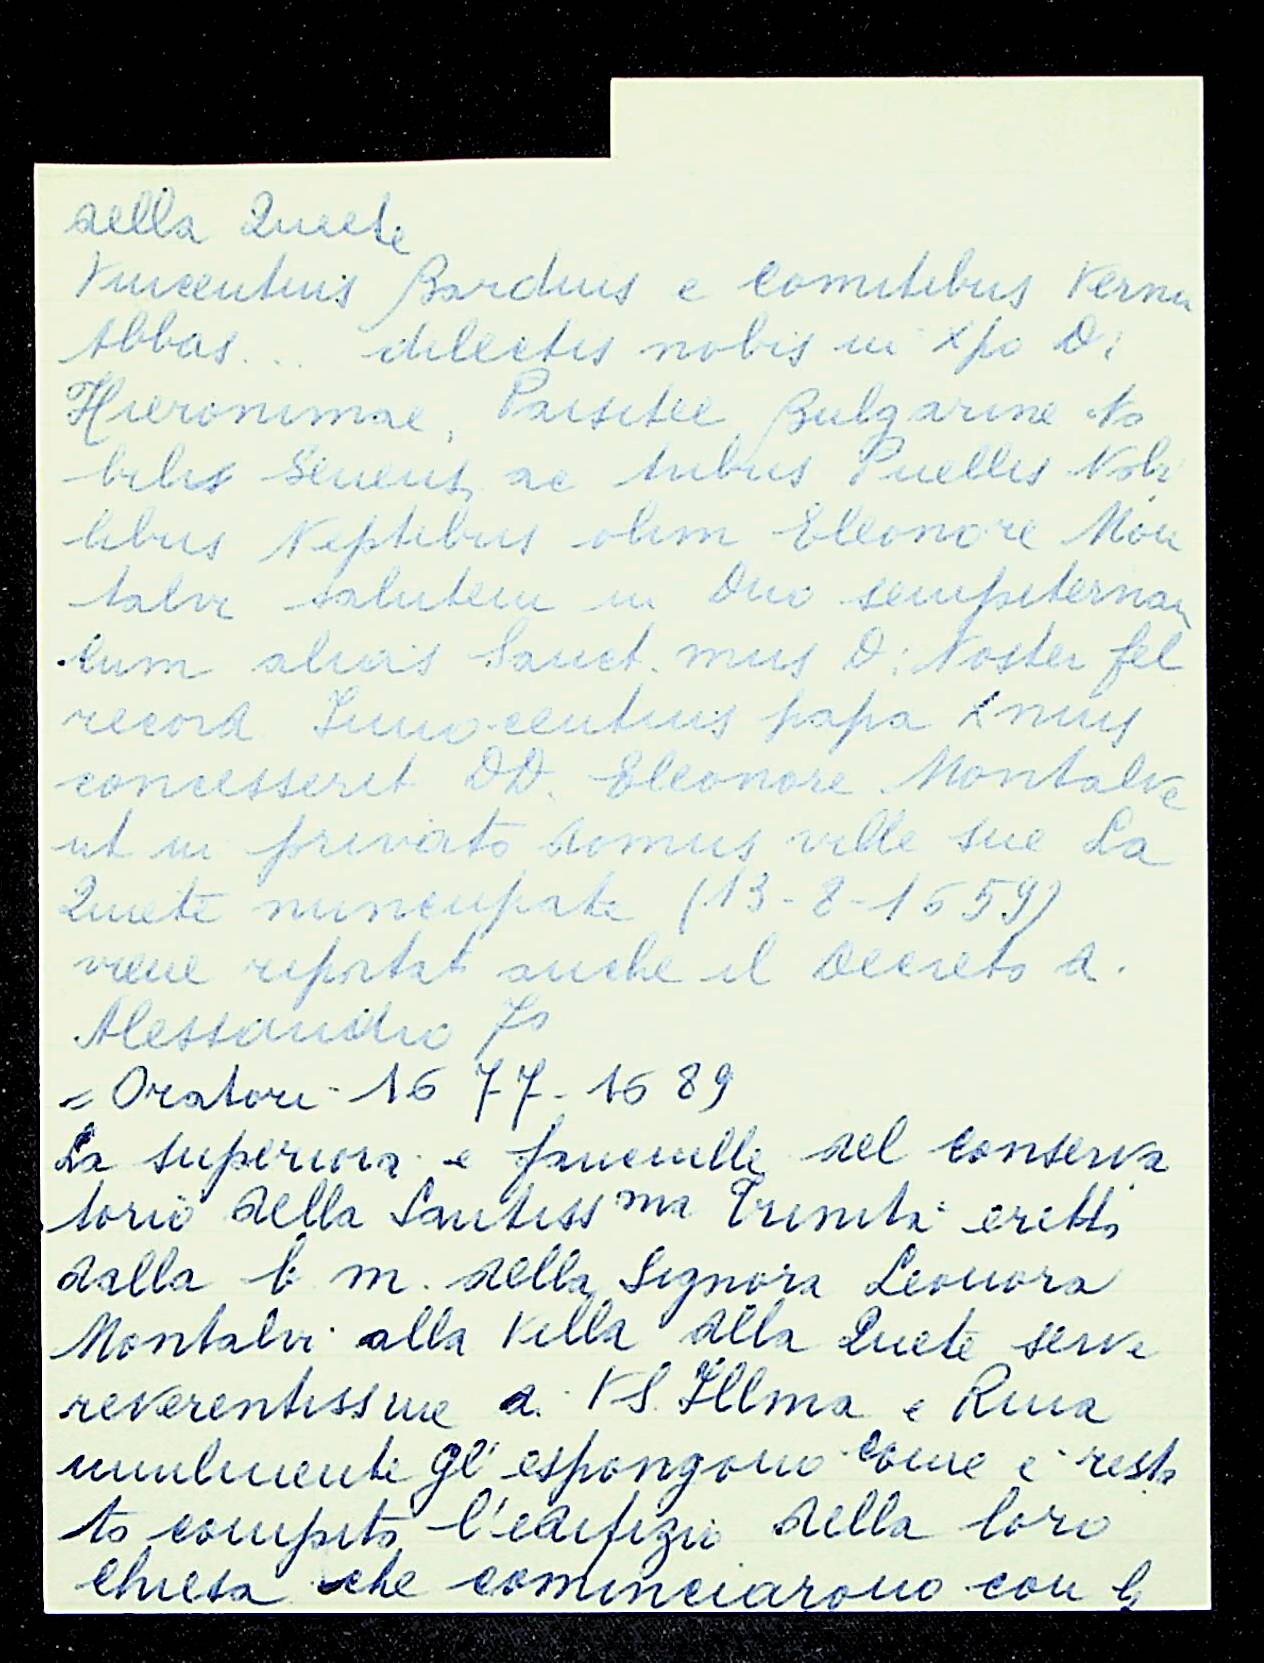 della Quiete
Vincentius Bardius e Comitibus Verni
Abbas... dilectis nobis in Xpo D:
Hieronimae, Pasitee Bulgarine No
bilis Senens, ac tribus Puellis Nobi
libus Neptibus olim Eleonore Mon
talvi salutem in Dno sempiternam
cum alias Sanct.mus D: Noster fel
record Innocentius papa Xmus
concesserit DD. Eleonore Montalve
ut in privato domus ville sue La
Quiete nuncupate (13-8-1659)
viene riportato anche il Decreto d.
Alessandro 7º
= Oratori - 1677-1689
La superiora e fanciulle del conserva
torio della Santiss ma Trinità eretto
dalla b m. della Signora Leonora
Montalvi alla Villa della Quiete serve
reverentissime d. VS. Illma e Rma
umilmente gl' espongono come è resta
to compito l'edifizio della loro
chiesa che cominciarono con la